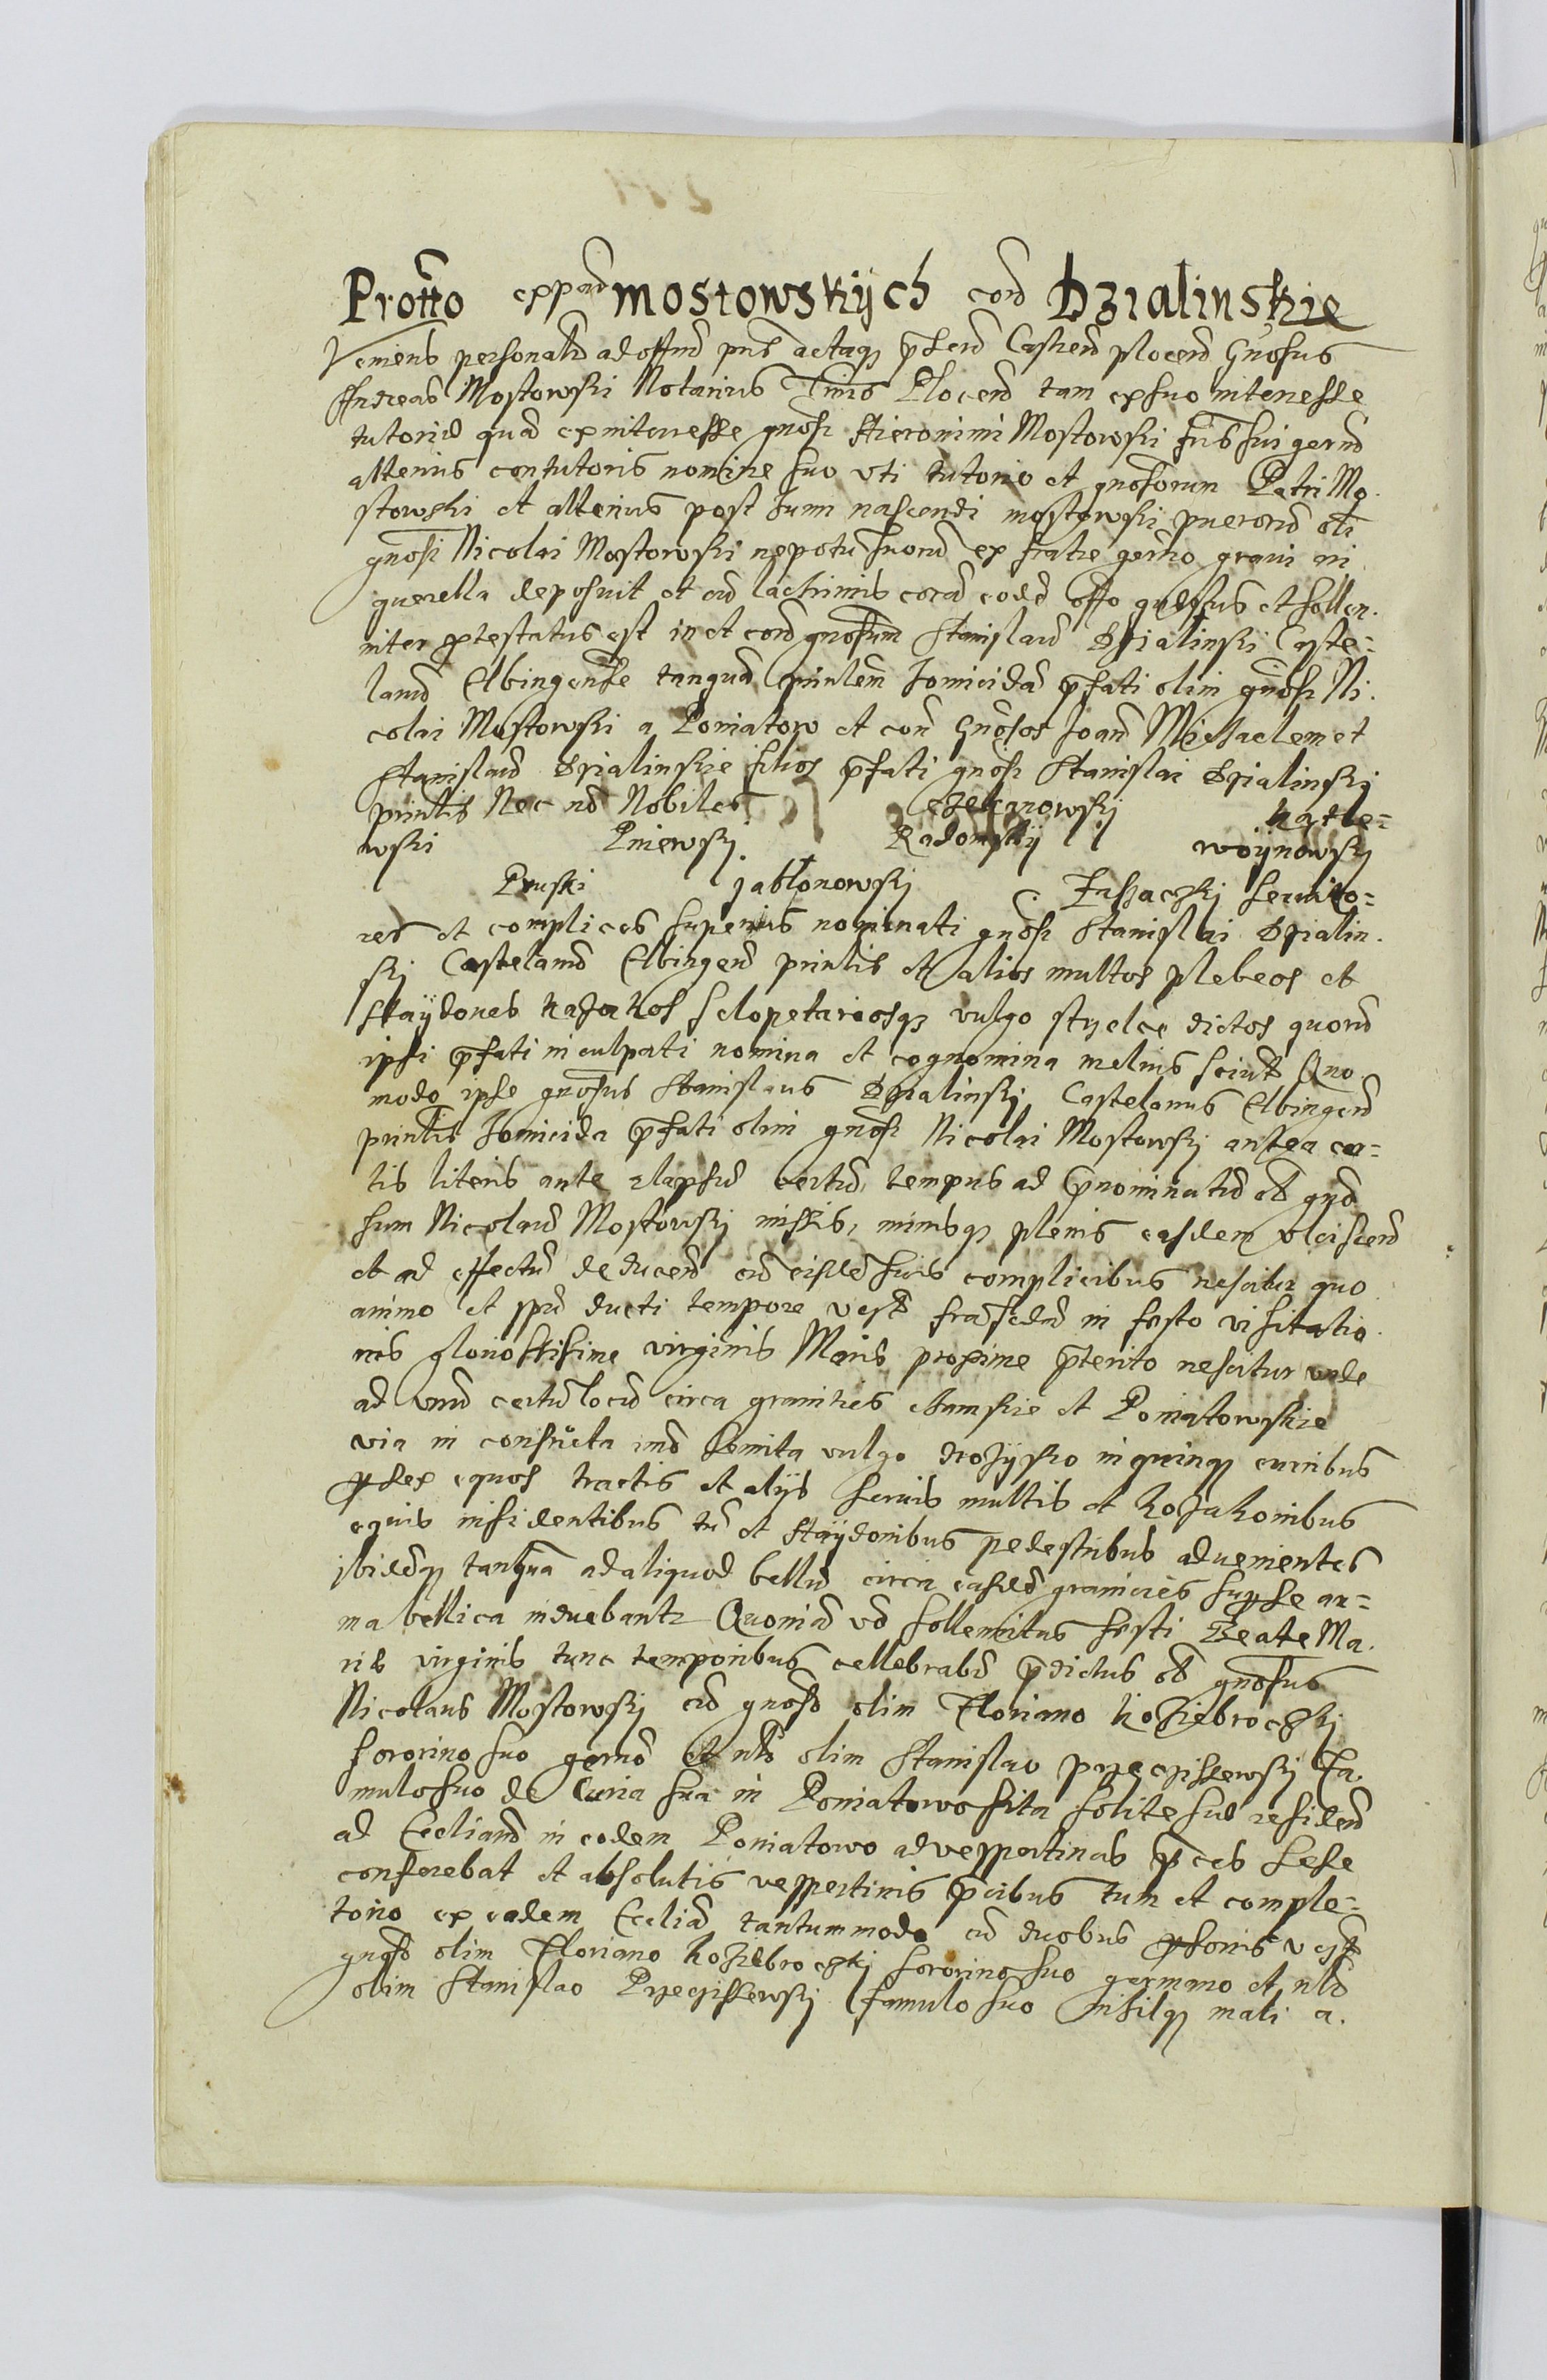 Protto expnd Mostowskÿch cond Dzialinskie
Veniens personalr ad offm pns actaq psend Castren plocen Gnosus
Andreas Mostowski Notarius Tnris Plocen tam ex suo interesse
tutorio quam ex interesse gnosi Hieronimi Mostowski fris sui germ
alterius contutoris nomine suo vti tutorio et gnosorum Petri Mo.
stowski et alterius post hum nascendi mostowski puerorum olim
gnosi Nicolai Mostowski nepotum suorum ex fratre germo graui in
querella deposuit et cum lachrimis coram eodem offo questus et sollen.
niter protestatus est in et contra gnosum Stanislaum Dzialinski Caste=
lanum Elbingense tanquam prinlem homicidam pfati olim gnosi Ni.
colai Mostowski a Poniatow et con Gnosos Joan Michaelem et
Stanislaum Dzialinskie filios pfati gnosi Stanislai Dzialinski
prinlis Nec no Nobiles Czekanowskj Katle=
wski Pniewskj. Radomskÿ woÿnowskj
Pruski Jablonowskj Zaszaczkj seruito=
res et complices superius nominati gnosi Stanislai Dzialin.
skj Castelani Elbingen prinlis et alios multos plebeos et
Haÿdones kazakos sclopetariosq vulgo strzelce dictos quorum
ipsi pfati inculpati nomina et cognomina melius sciunt Quo
modo ipse gnosus Stanislaus Dzialinskj Castelanus Elbingen
prinlis homicida pfati olim gnosi Nicolai Mostowskj antea cer=
tis literis ante elapsum certum tempus ad pnominatum ol gno
sum Nicolaum Mostowskj missis, minisq plenis easdem vlciscend
et ad effectum deducend cum eisdem suis complicibus nescitur quo
animo et spu ducti tempore vesp fra scda in festo visitatio.
nis gloriosissime virginis Maris proxime pterito nescitur vnde
ad vnum certum locum circa granities et Poniatowskie
via in consueta imo semita vulgo drozÿsko in quinq curribus
p sex equos tractis et alijs seruis multis et kozakonibus
equis insidentibus tum et Haÿdonibus pedestribus aduenientes
ibidemq tanquam ad aliquod bellum circa easdem granicies super se ar=
ma bellica induebantr Quoniam vo sollennitas festi Beate Ma.
ris virginis tunc temporibus cellebrabr pdictus ol gnosus
Nicolaus Mostowskj cum gnoso olim Floriano kozÿebrockj
sororino suo germo et nli olim Stanislao Przeciszewskj fa.
mulo suo de Curia sua in Poniatowo sita solite sue residen
ad Eccliam in eodem Poniatowo ad vesppertinas pces sese
conferebat et absolutis vesppertinis pcibus tum et comple=
torio ex eadem Ecclia tantummodo cum duobus psonis vesp
gnoso olim Floriano kozÿebrockj sororino suo germano et nli
olim Stanislao Przeciszewskj famulo suo nihilq mali a.